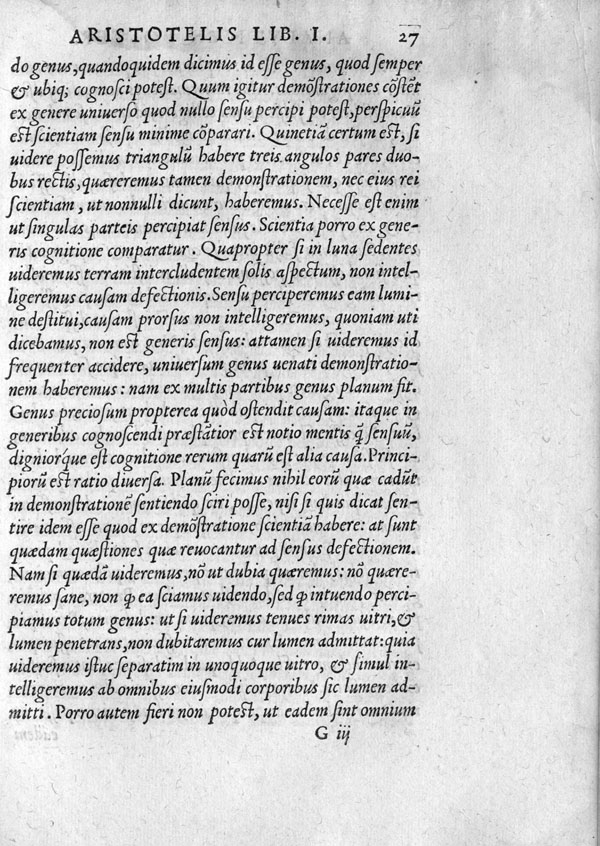 ARISTOTELIS LIB. I. 27
do genus,quandoquidem dicimus id esse genus, quod semper
& ubiq; cognosci potest. Quum igitur demõstrationes cõstẽt
ex genere uniuerso quod nullo sensu percipi potest,perspicuũ
est scientiam sensu minime cõparari. Quinetiã certum est, si
uidere possemus triangulũ habere treis angulos pares duo-
bus rectis, quæreremus tamen demonstrationem, nec eius rei
scientiam, ut nonnulli dicunt, haberemus. Necesse est enim
ut singulas parteis percipiat sensus. Scientia porro ex gene-
ris cognitione comparatur. Quapropter si in luna sedentes
uideremus terram intercludentem solis aspectum, non intel-
ligeremus causam defectionis.Sensu perciperemus eam lumi-
ne destitui,causam prorsus non intelligeremus, quoniam uti
dicebamus, non est generis sensus: attamen si uideremus id
frequenter accidere, uniuersum genus uenati demonstratio-
nem haberemus: nam ex multis partibus genus planum fit.
Genus preciosum propterea quòd ostendit causam: itaque in
generibus cognoscendi præstãtior est notio mentis q̃ sensuũ,
digniorq́ue est cognitione rerum quarũ est alia causa.Princi-
piorũ est ratio diuersa. Planũ fecimus nihil eorũ quæ cadũt
in demonstrationẽ sentiendo sciri posse, nisi si quis dicat sen-
tire idem esse quod ex demõstratione scientiã habere: at sunt
quædam quæstiones quæ reuocantur ad sensus defectionem.
Nam si quædã uideremus,nõ ut dubia quæremus: nõ quære-
remus sane, non ꝙ ea sciamus uidendo,sed ꝙ intuendo perci-
piamus totum genus: ut si uideremus tenues rimas uitri,&
lumen penetrans,non dubitaremus cur lumen admittat:quia
uideremus istuc separatim in unoquoque uitro, & simul in-
telligeremus ab omnibus eiusmodi corporibus sic lumen ad-
mitti. Porro autem fieri non potest, ut eadem sint omnium
G iij